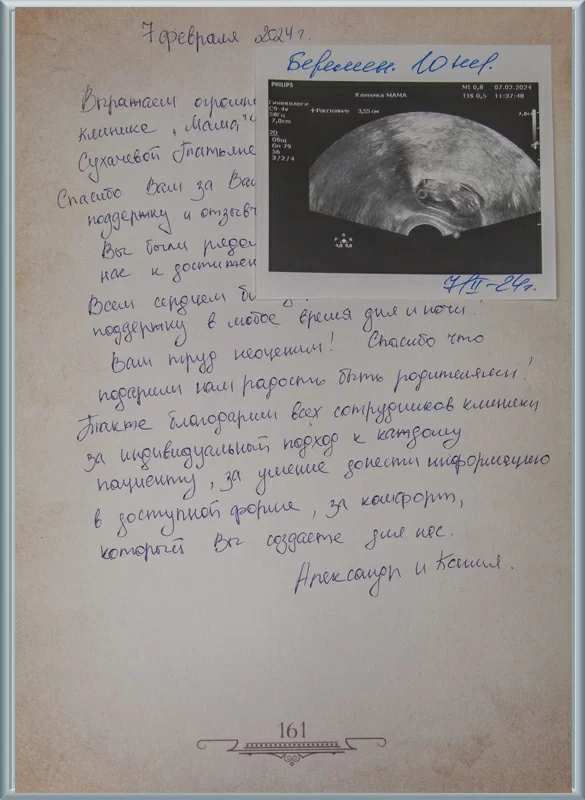 7 февраля 2024 г.
Беремен. 10 нед.
PHILIPS
Клиника МАМА
MI 0,8 07.02.2024
TIS 0,5 11:37:48
Гинекологи
C9-4v
58Гц
7,0cm
2D
Общ
Gn 79
56
3/2/4
+ Расстояние 3,55 см
7/II-24г.
Выражаем огромн
клинике „Мама"
Сухачевой Татьяне
Спасибо Вам за Ва
поддержку и отзывч
Вы были рядо
нас к достижен
Всем сердцем бл
поддержку в любое время дня и ночи!
Вам труд неоценим! Спасибо что
подарили нам радость быть родителями!
Также благодарим всех сотрудников клиники
за индивидуальный подход к каждому
пациенту, за умение донести информацию
в доступной форме, за комфорт,
который Вы создаете для нас.
Александр и Ксения.
161